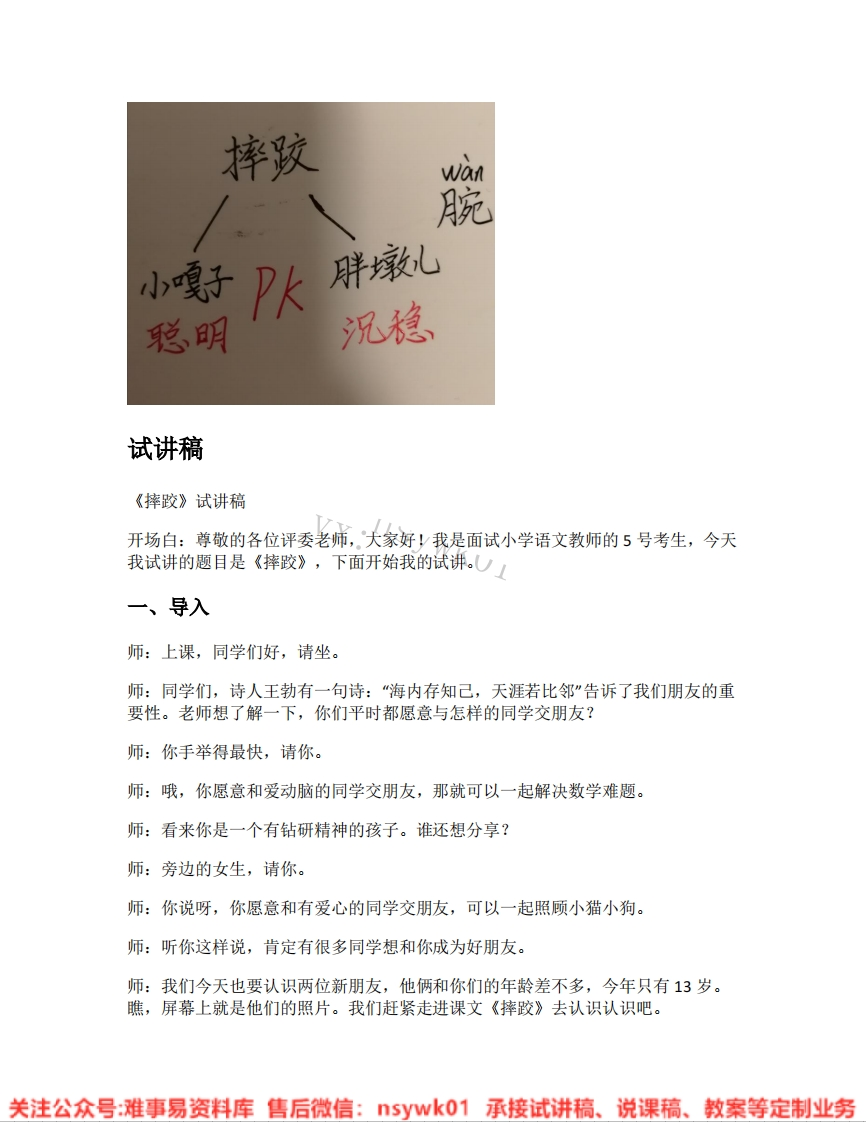 摔跤
wàn
腕
小嘎子 PK 胖墩儿
聪明 沉稳
试讲稿
《摔跤》试讲稿
vx:nsywk01
开场白：尊敬的各位评委老师，大家好！我是面试小学语文教师的 5 号考生，今天
我试讲的题目是《摔跤》，下面开始我的试讲。
一、导入
师：上课，同学们好，请坐。
师：同学们，诗人王勃有一句诗：“海内存知己，天涯若比邻”告诉了我们朋友的重
要性。老师想了解一下，你们平时都愿意与怎样的同学交朋友？
师：你手举得最快，请你。
师：哦，你愿意和爱动脑的同学交朋友，那就可以一起解决数学难题。
师：看来你是一个有钻研精神的孩子。谁还想分享？
师：旁边的女生，请你。
师：你说呀，你愿意和有爱心的同学交朋友，可以一起照顾小猫小狗。
师：听你这样说，肯定有很多同学想和你成为好朋友。
师：我们今天也要认识两位新朋友，他俩和你们的年龄差不多，今年只有 13 岁。
瞧，屏幕上就是他们的照片。我们赶紧走进课文《摔跤》去认识认识吧。
关注公众号:难事易资料库 售后微信：nsywk01 承接试讲稿、说课稿、教案等定制业务